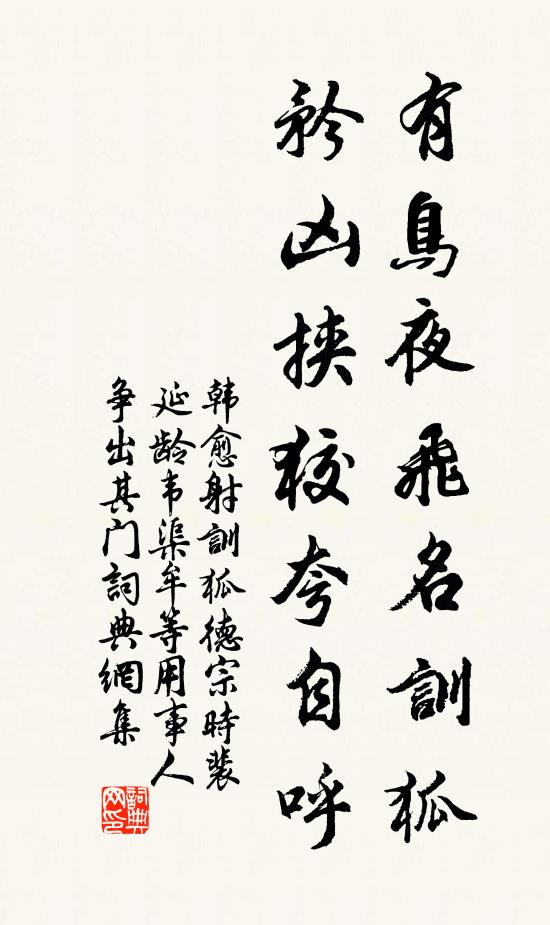 有鳥夜飛名訓狐
矜凶挾狡夸自呼
韩愈射訓狐德宗時裴
延龄韦渠牟等用事人
争出其门詞典網集
詞典網印